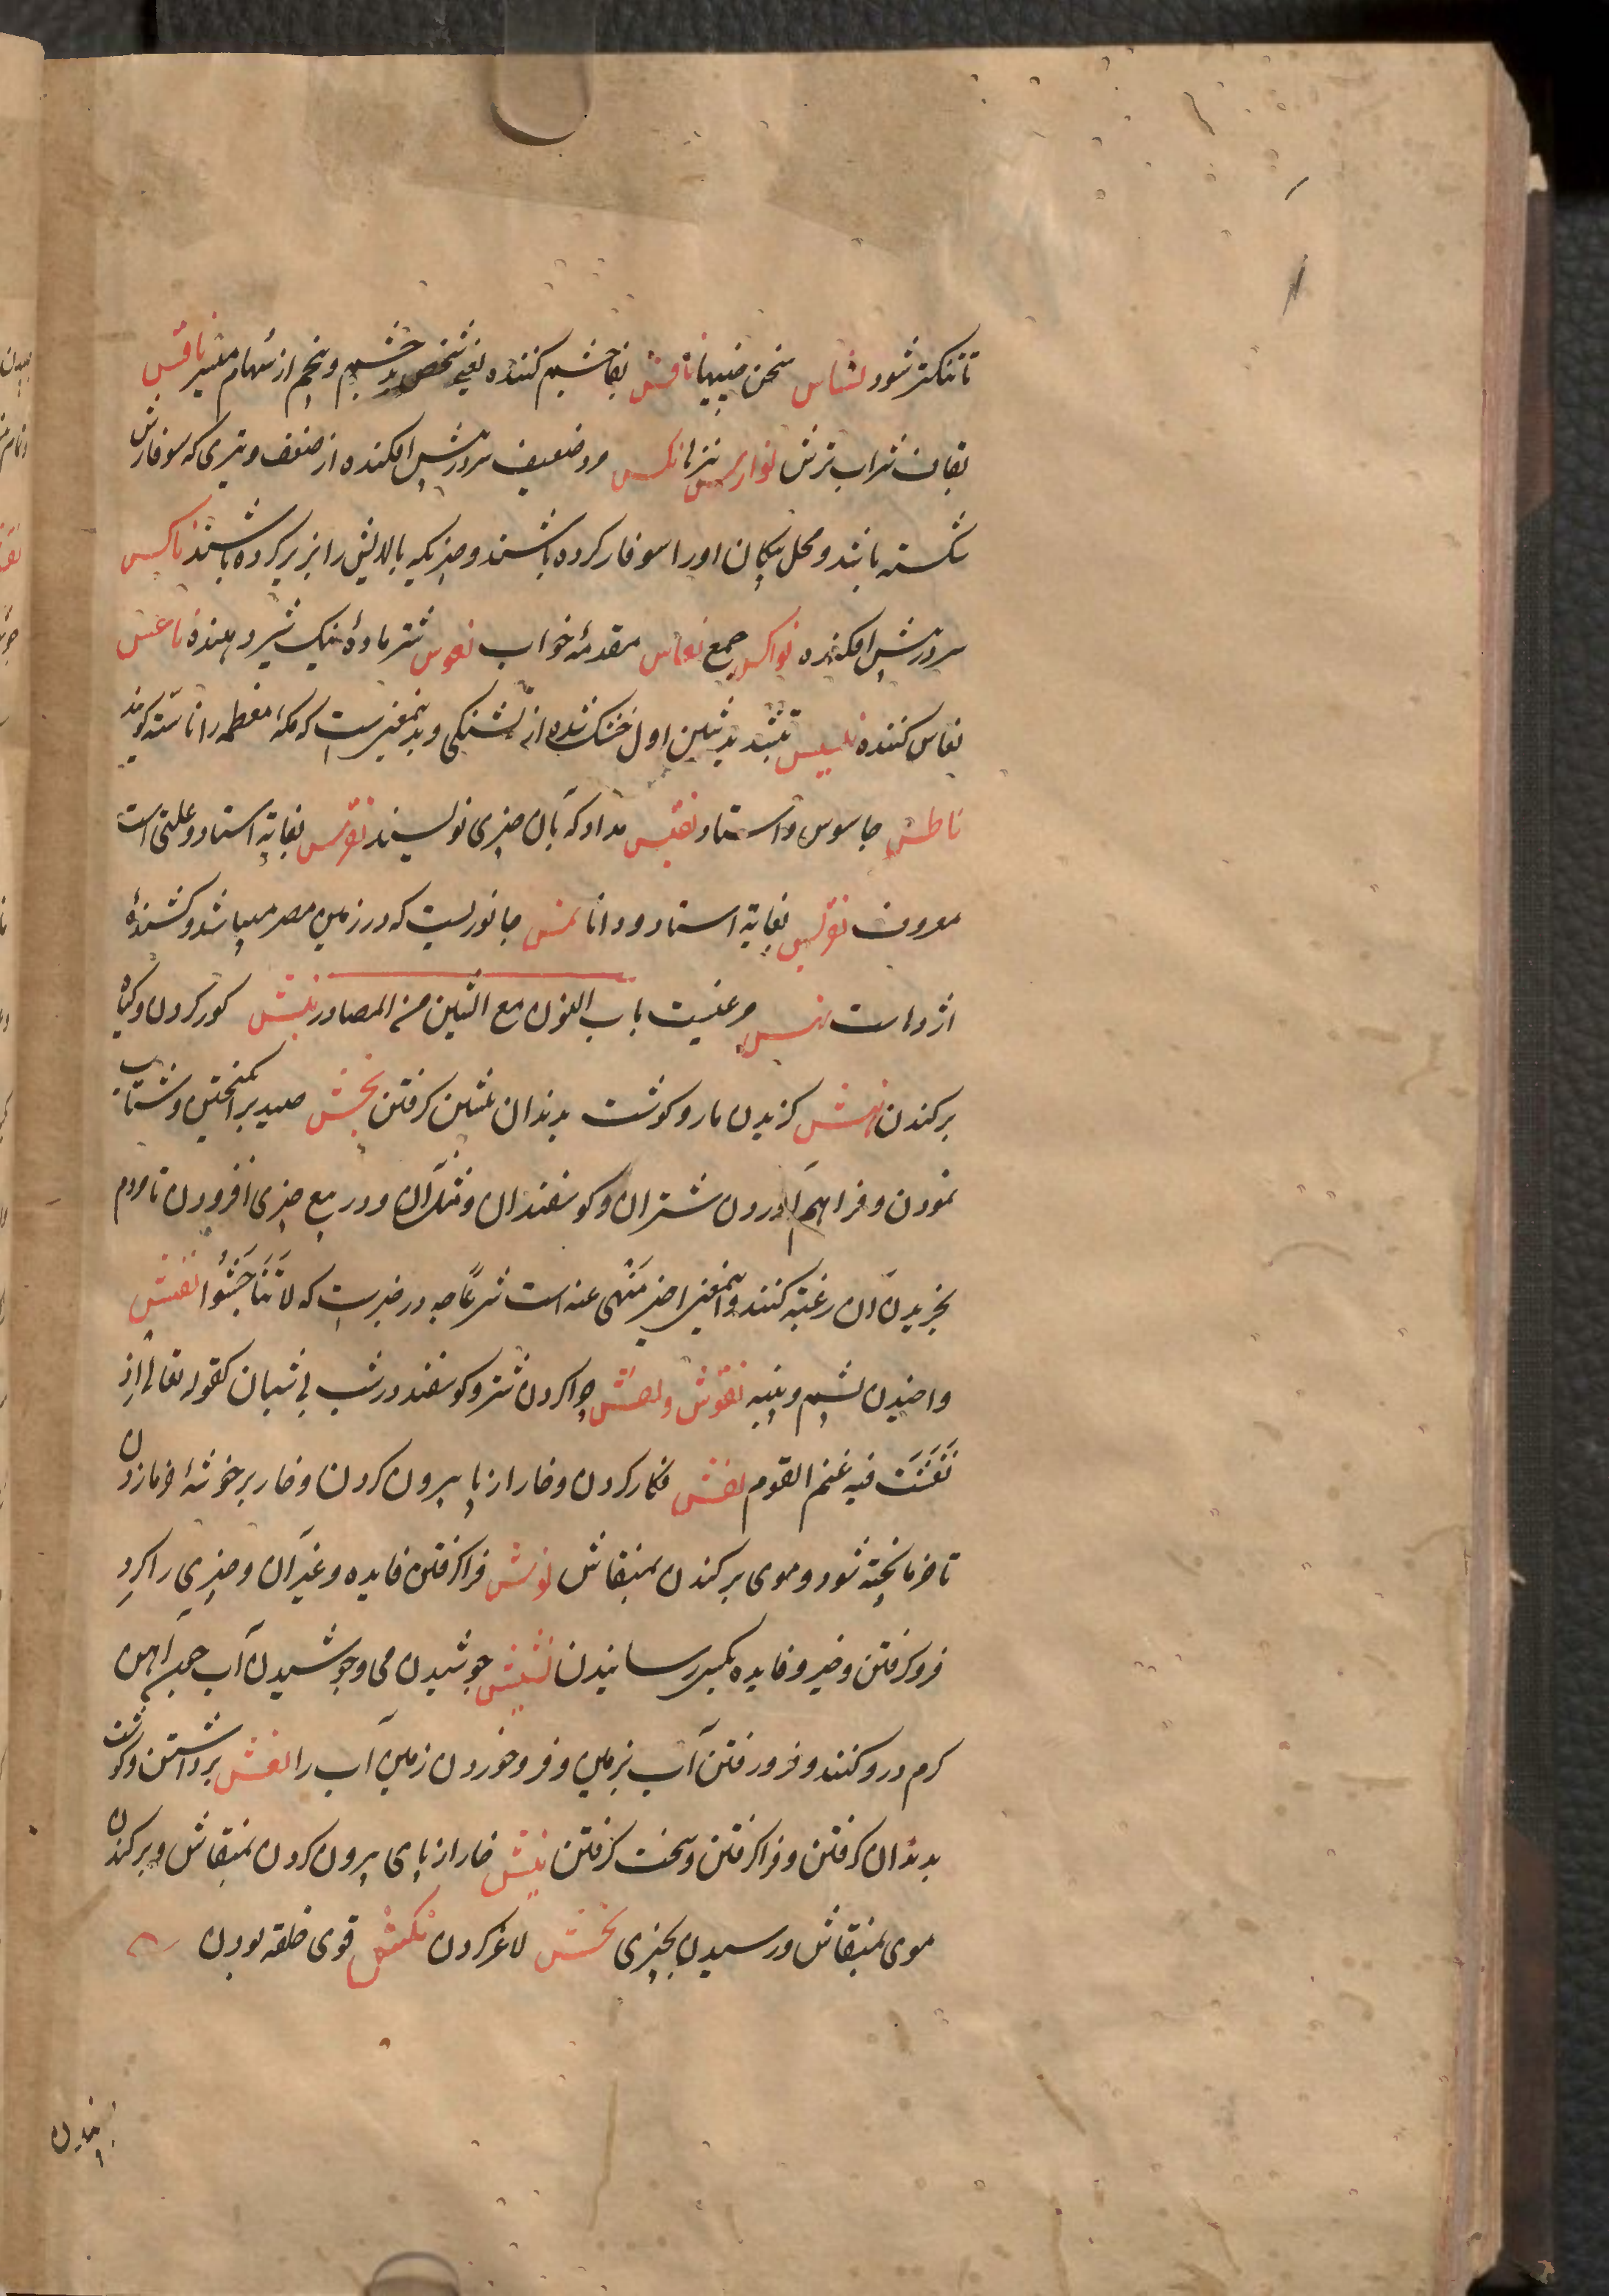 تا تنکتر شود نسناس سخن چینیها نافس بفا چشم کننده یعنی شخص بد چشم و پنجم از سهام میسر ناقس
بقاف شراب ترش نواریس نیز ناکس مرد ضعیف سردرپیش افکنده از ضعف و تیری که سوفارش
شکسته باشد و محل پیکان او را سوفار کرده باشند و چیزیکه بالایش را بزیر کرده باشند ناکس
سردرپیش افکنده نواکس جمع نعاس مقدمهٔ خواب نعوس شتر مادهٔ نیک شیر دهنده ناعس
نعاس کننده بتشدید سین اول خشک شده از تشنکی و بدینمعنیست که مکهٔ معظمه را ناسّه کویند
ناطس جاسوس و استاد نقس مداد که بآن چیزی نویسند نقرس بغایة استاد و علتی است
معروف نقریس بغایة استاد و دانا نمس جانوریست که در زمین مصر میباشد و کشندهٔ
اژدهاست نهس مرغیست باب النون مع الشین من المصادر نبش کور کردن و کیاه
برکندن نهش کزیدن مار و کوشت بدندان پیشین کرفتن نجش صید برانکیختن و شتاب
نمودن و فراهم آوردن شتران و کوسفندان و مثل آن و در بیع چیزی افزودن تا مردم
بخریدن آن رغبة کنند و اینمعنی اخیر منهی عنه است شرعًا چه در خبرست که لا تَنَاجَشُوا نفش
واخیدن پشم و پنبه نفوش و نفش چرا کردن شتر و کوسفند در شب بی شبان کقوله تعالی اذ
نَفَشَت فیه غنم القوم نقش نکار کردن و خار از پا بیرون کردن و خار بر خوشهٔ خرما زدن
تا خرما پخته شود و موی برکندن بمنقاش نوش فراکرفتن فایده و غیر آن و چیزی را کرد
فرو کرفتن و خیر و فایده بکسی رسانیدن نشیش جوشیدن می و جوشیدن آب چون آهن
کرم درو کنند و فرو رفتن آب بزمین و فرو خوردن زمین آب را نعش برداشتن و کوشت
بدندان کرفتن و فراکرفتن و سخت کرفتن نتش خار از پای بیرون کردن بمنقاش و برکندن
موی بمنقاش و رسیدن بچیزی نخش لاغر کردن نکش قوی خلقه بودن